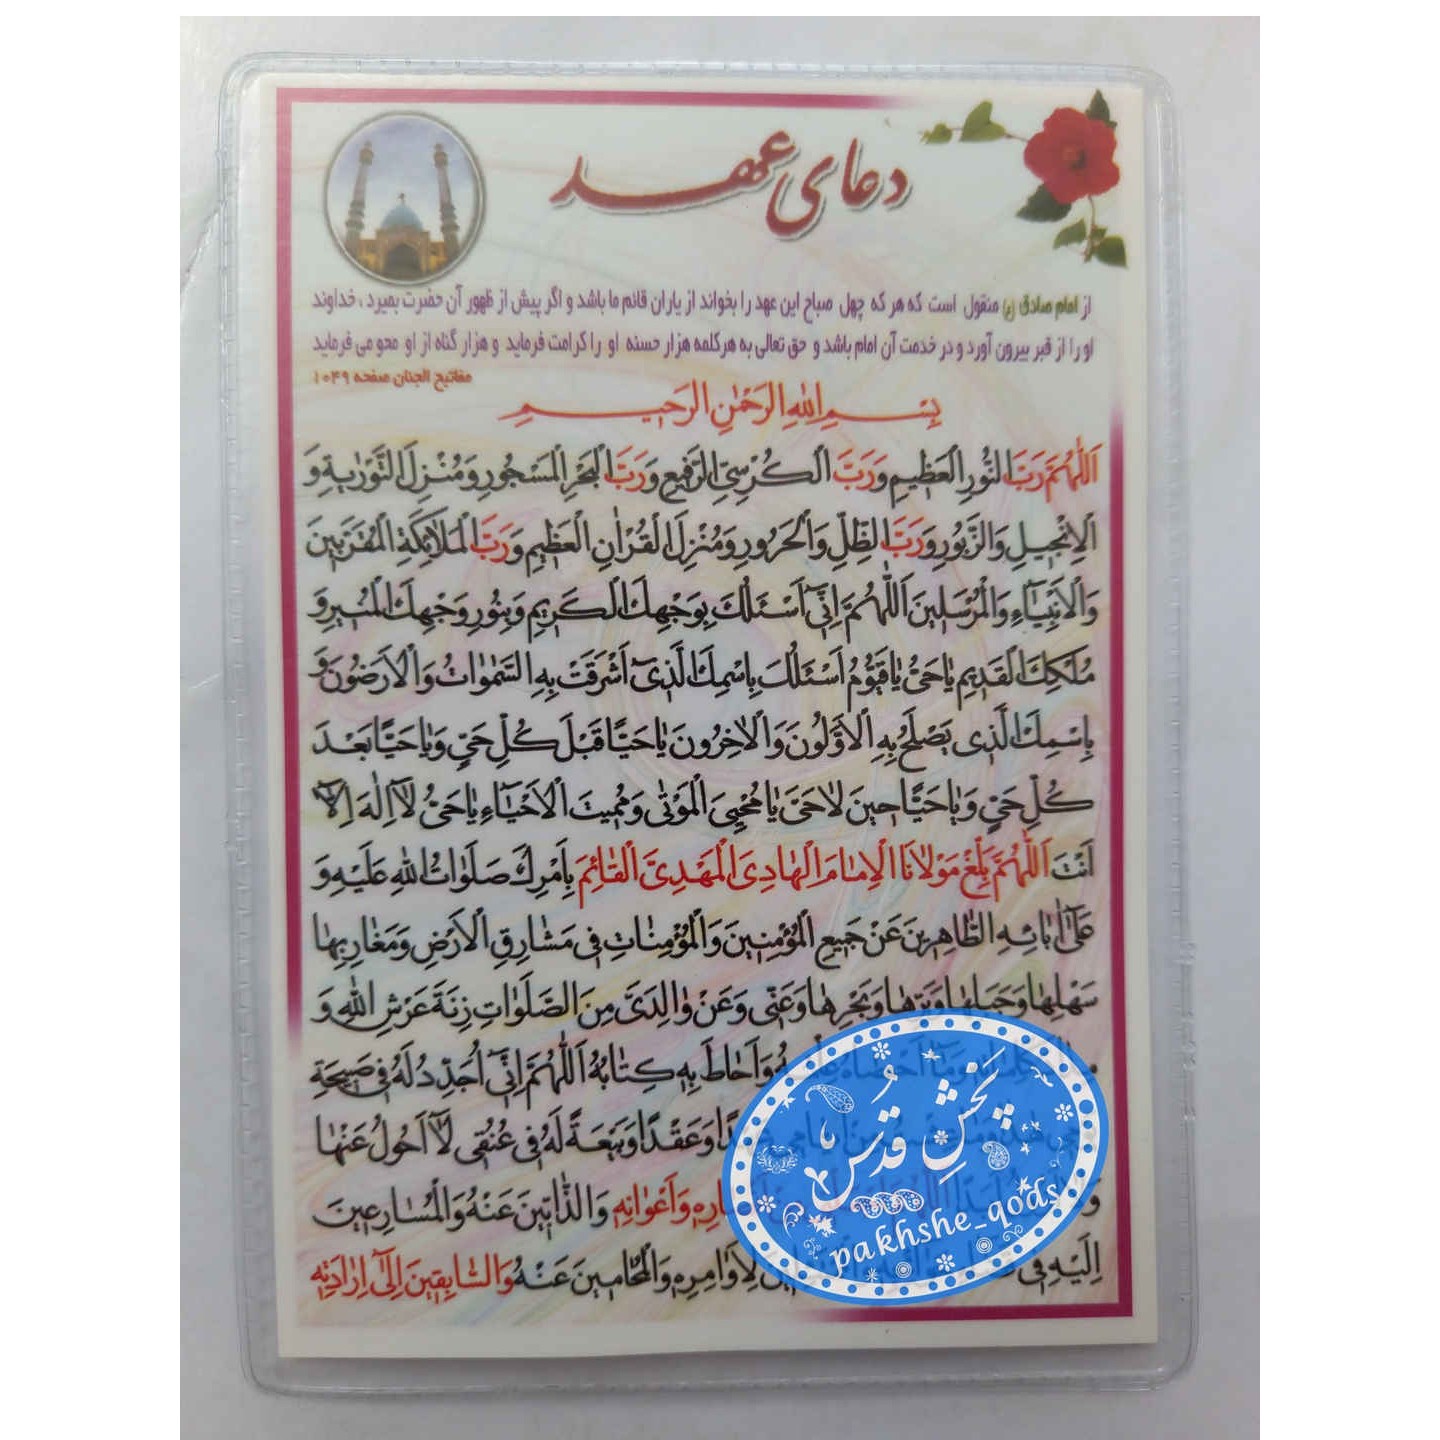 دعای عهد
از امام صادق (ع) منقول است که هر که چهل صباح این عهد را بخواند از یاران قائم ما باشد و اگر پیش از ظهور آن حضرت بمیرد ، خداوند
او را از قبر بیرون آورد و در خدمت آن امام باشد و حق تعالی به هر کلمه هزار حسنه او را کرامت فرماید و هزار گناه از او محو می فرماید
مفاتیح الجنان صفحه ۱۰۴۹
بِسْمِ اللهِ الرَّحْمٰنِ الرَّحیمِ
اَللّٰهُمَّ رَبَّ النُّورِ الْعَظیمِ وَ رَبَّ الْکُرْسِیِّ الرَّفیعِ وَ رَبَّ الْبَحْرِ الْمَسْجُورِ وَ مُنْزِلَ التَّوْرٰیةِ وَ
الْاِنْجیلِ وَ الزَّبُورِ وَ رَبَّ الظِّلِّ وَ الْحَرُورِ وَ مُنْزِلَ الْقُرْاٰنِ الْعَظیمِ وَ رَبَّ الْمَلآئِکَةِ الْمُقَرَّبینَ
وَ الْاَنْبِیآءِ وَ الْمُرْسَلینَ اَللّٰهُمَّ اِنّیٓ اَسْئَلُکَ بِوَجْهِکَ الْکَریمِ وَ بِنُورِ وَجْهِکَ الْمُنیرِ وَ
مُلْکِکَ الْقَدیمِ یٰا حَیُّ یٰا قَیُّومُ اَسْئَلُکَ بِاسْمِکَ الَّذیٓ اَشْرَقَتْ بِهِ السَّمٰوٰاتُ وَ الْاَرَضُونَ وَ
بِاسْمِکَ الَّذی یَصْلَحُ بِهِ الْاَوَّلُونَ وَ الْاٰخِرُونَ یٰا حَیًّا قَبْلَ کُلِّ حَیٍّ وَ یٰا حَیًّا بَعْدَ
کُلِّ حَیٍّ وَ یٰا حَیًّا حینَ لٰا حَیَّ یٰا مُحْیِیَ الْمَوْتٰی وَ مُمیتَ الْاَحْیٰآءِ یٰا حَیُّ لٰآ اِلٰهَ اِلّٰآ
اَنْتَ اَللّٰهُمَّ بَلِّغْ مَوْلٰانَا الْاِمٰامَ الْهٰادِیَ الْمَهْدِیَّ الْقٰائِمَ بِاَمْرِکَ صَلَوٰاتُ اللهِ عَلَیْهِ وَ
عَلٰیٓ اٰبٰائِهِ الطّٰاهِرینَ عَنْ جَمیعِ الْمُؤْمِنینَ وَ الْمُؤْمِنٰاتِ فی مَشٰارِقِ الْاَرْضِ وَ مَغٰارِبِهٰا
سَهْلِهٰا وَ جَبَلِهٰا وَ بَرِّهٰا وَ بَحْرِهٰا وَ عَنّی وَ عَنْ وٰالِدَیَّ مِنَ الصَّلَوٰاتِ زِنَةَ عَرْشِ اللهِ وَ
وَ اَحٰاطَ بِهِ کِتٰابُهُ اَللّٰهُمَّ اِنّیٓ اُجَدِّدُ لَهُ فی صَبیحَةِ
وَ عَقْدًا وَ بَیْعَةً لَهُ فی عُنُقی لٰآ اَحُولُ عَنْهٰا
وَ اَعْوٰانِهِ وَ الذّٰابّینَ عَنْهُ وَ الْمُسٰارِعینَ
اِلَیْهِ فی لِاَوٰامِرِهِ وَ الْمُحٰامینَ عَنْهُ وَ السّٰابِقینَ اِلٰیٓ اِرٰادَتِهِ
پخش قدس
pakhshe_qods